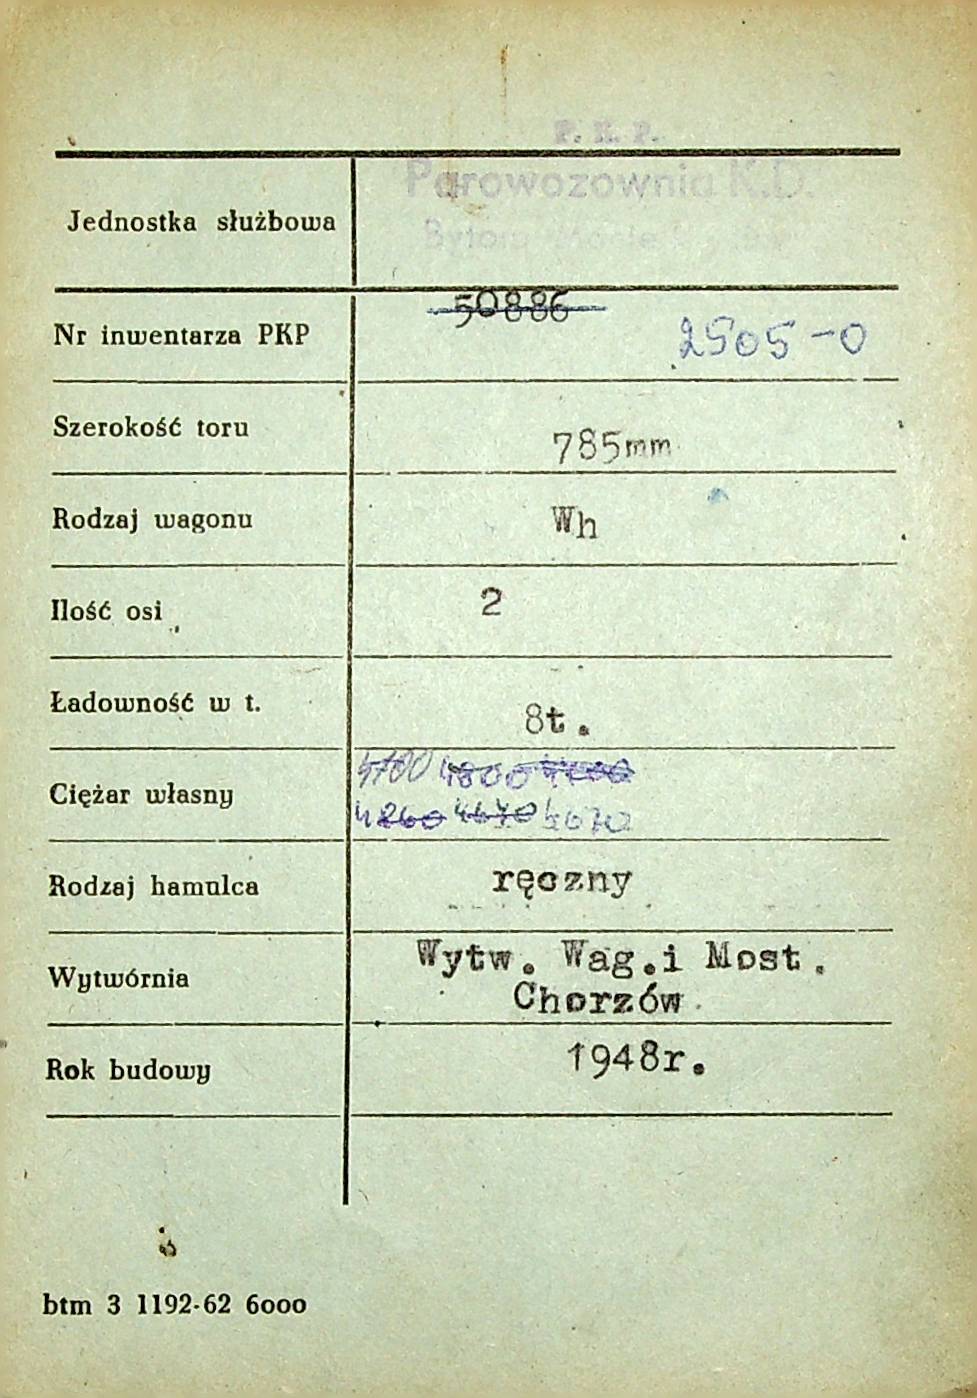 P. K. P.
Parowozownia K.D.
Jednostka służbowa
Bytom
50886
Nr inwentarza PKP
2505-0
Szerokość toru
785mm
Rodzaj wagonu
Wh
Ilość osi
2
Ładowność w t.
8t.
4700 4800
Ciężar własny
4260 4670 4670
Rodzaj hamulca
ręczny
Wytw. Wag.i Most.
Wytwórnia
Chorzów
Rok budowy
1948r.
btm 3 1192-62 6000